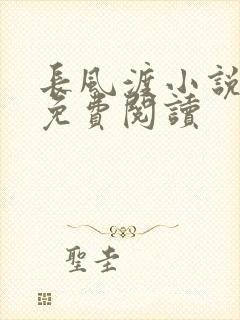 長風渡小說
免費閱讀
聖圭